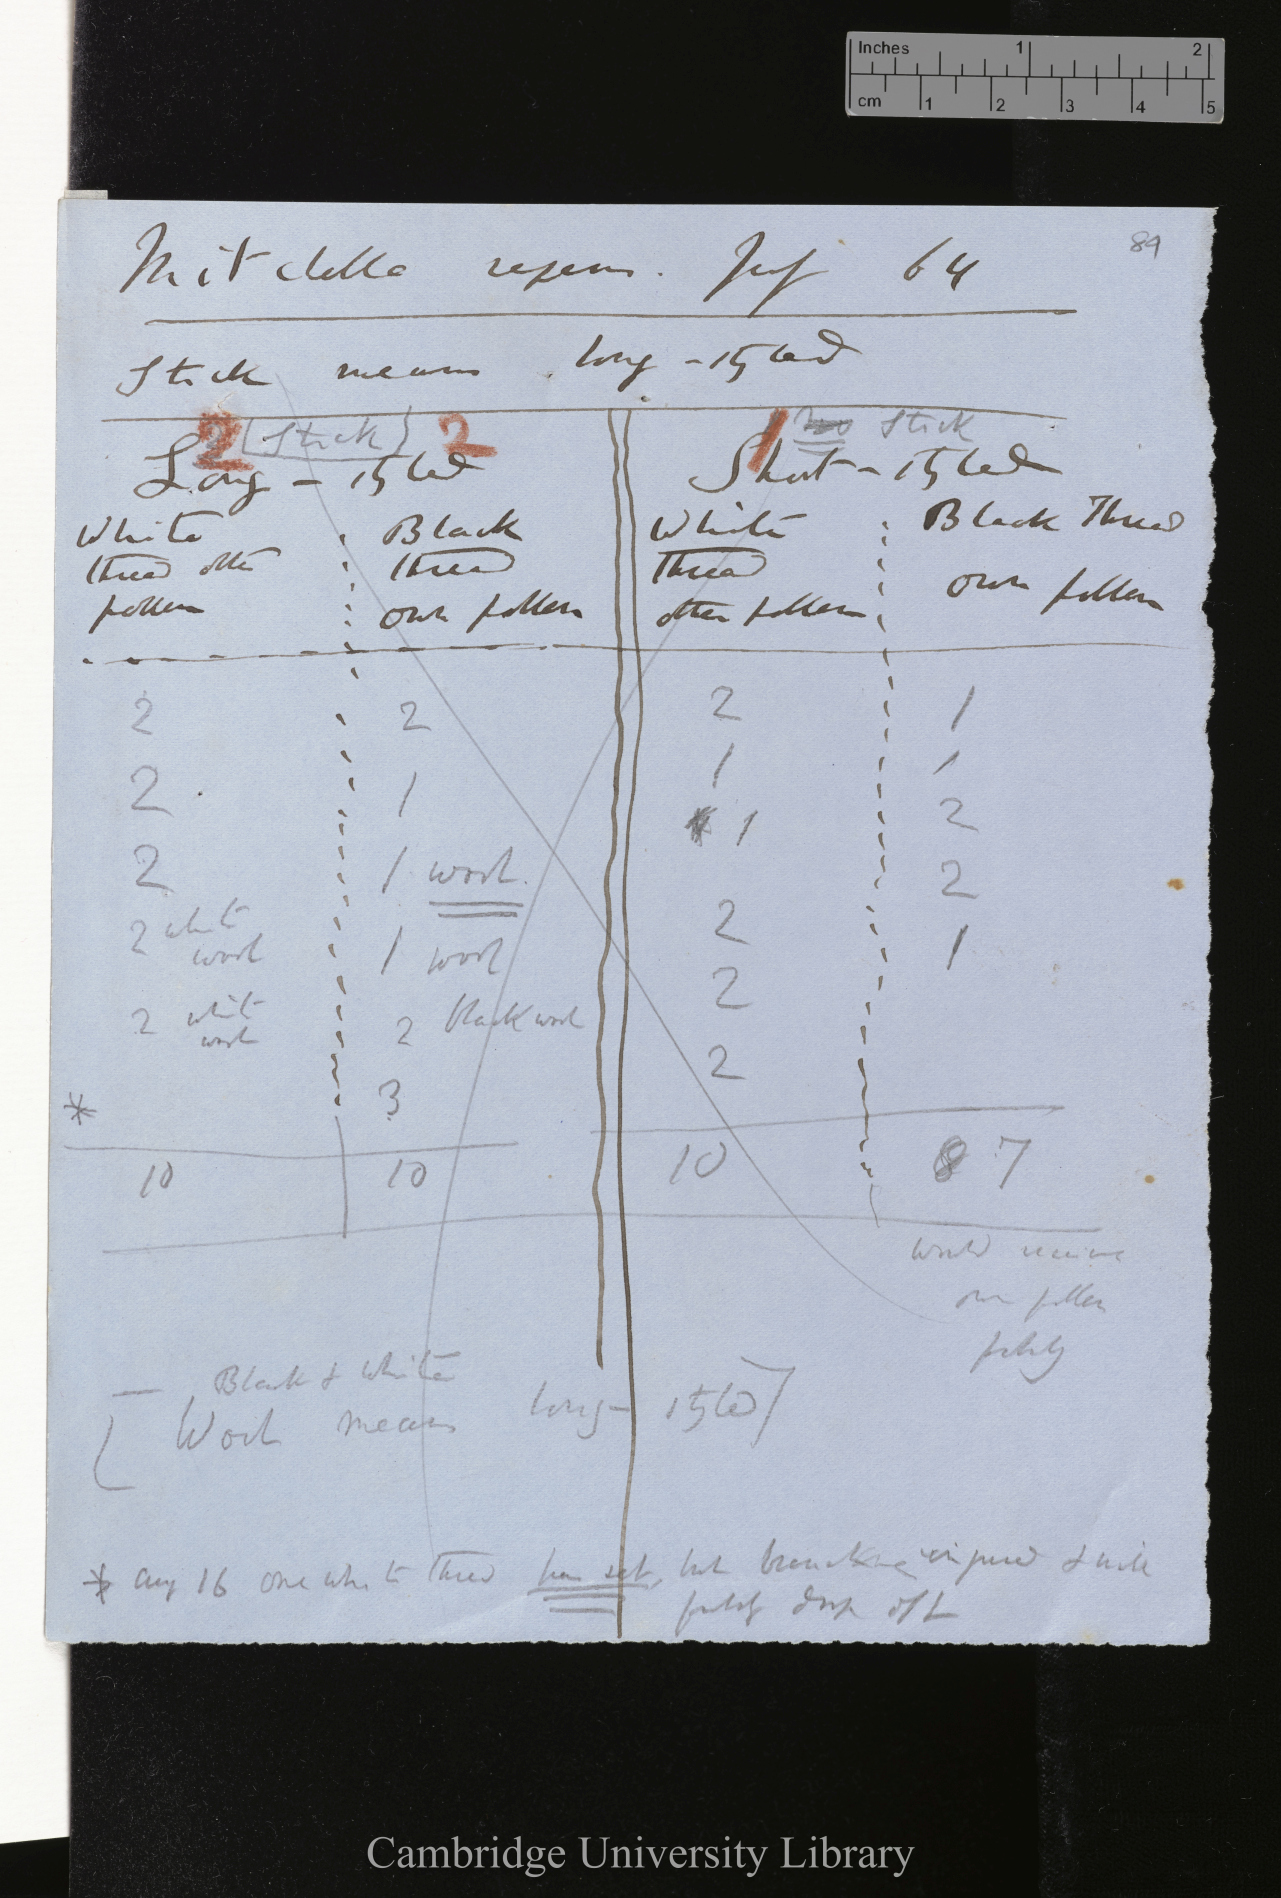 Inches 1 2
cm 1 2 3 4 5
89
Mitchella repens. July 64
Stick means long-styled
2 (Stick) 2
1 no Stick
Long-styled
Short-styled
White thread other pollen
Black thread own pollen
White Thread other pollen
Black Thread own pollen
2 2 2 1
2 1 1 1
2 1 wool. 1 2
2 white wool 1 wool 2 2
2 white wool 2 black wool 2 1
* 3 2
10 10 10 8 7
would receive
own pollen
probly
Black & White
[Wool means long-styled]
* Aug 16 one white thread has set, but branch injured & will
probly drop off
Cambridge University Library